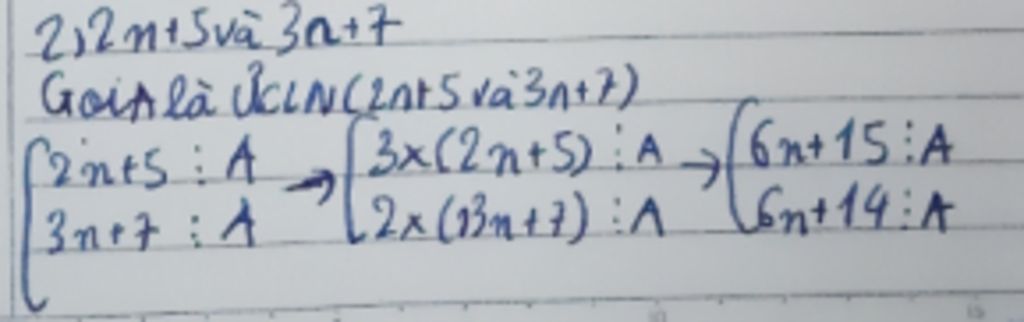 2, 2n+5 và 3n+7
Gọi A là ƯCLN(2n+5 và 3n+7)
2n+5 ⋮ A → 3×(2n+5) ⋮ A → 6n+15 ⋮ A
3n+7 ⋮ A 2×(3n+7) ⋮ A 6n+14 ⋮ A